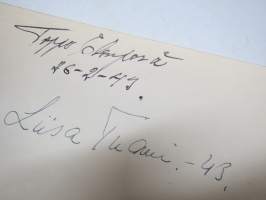 Toppo Elonperä
26-2-43.
Liisa Tuomi.-43.